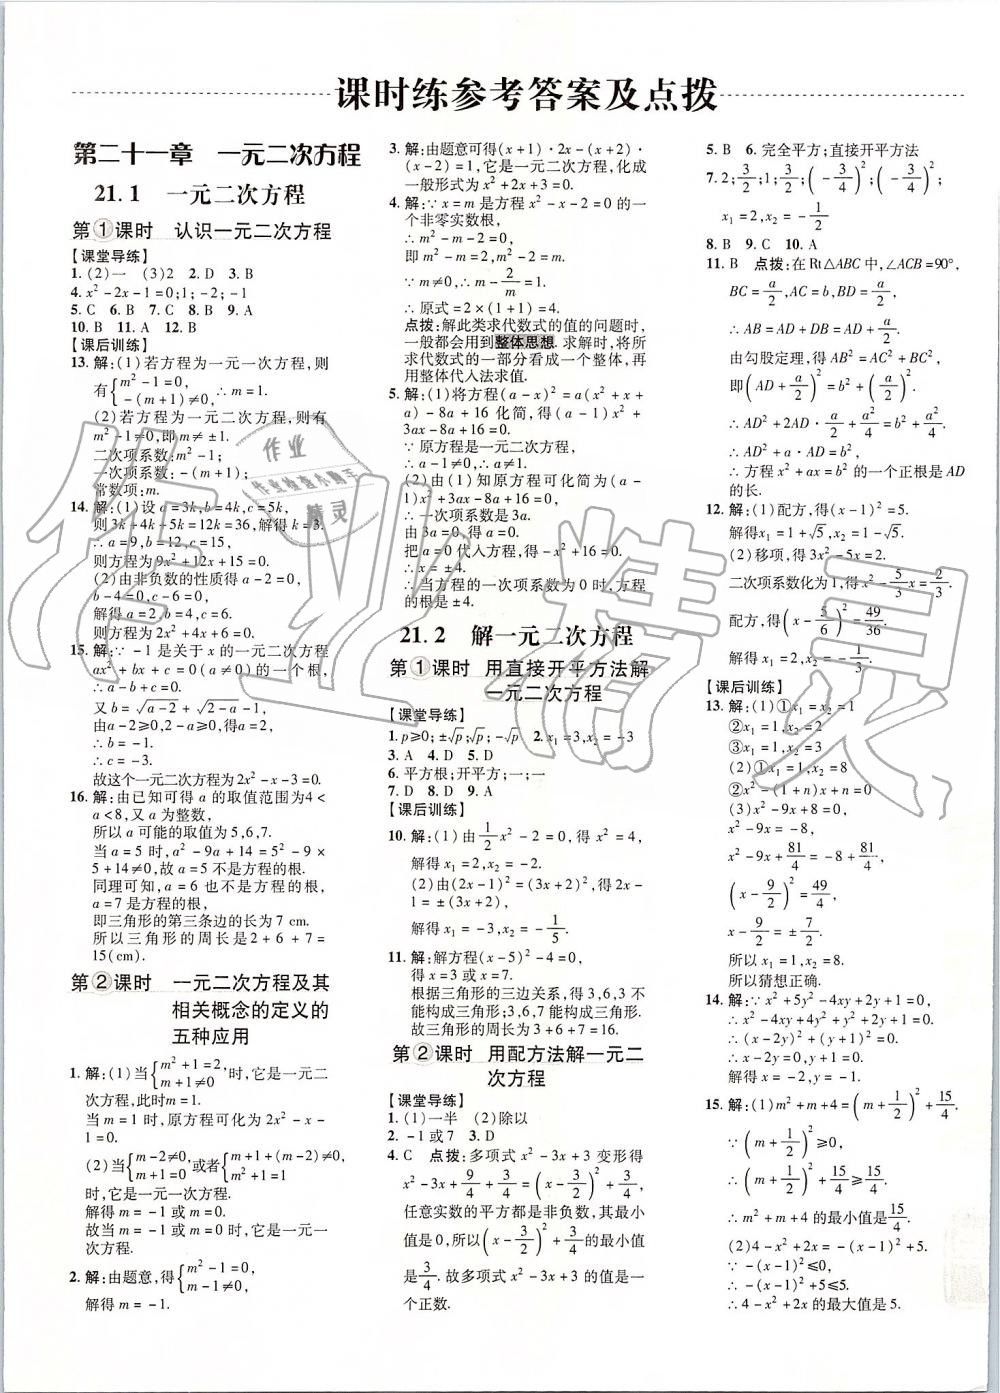 课时练参考答案及点拨
第二十一章 一元二次方程
21.1 一元二次方程
第①课时 认识一元二次方程
【课堂导练】
1.(2)一 (3)2 2.D 3.B
4.x²-2x-1=0;1;-2;-1
5.C 6.B 7.C 8.B 9.A
10.B 11.A 12.B
【课后训练】
13.解:(1)若方程为一元一次方程,则
有{m²-1=0, -(m+1)≠0.
(2)若方程为一元二次方程,则有
m²-1≠0,即m≠±1.
二次项系数:m²-1;
一次项系数:-(m+1);
常数项:m.
14.解:(1)设a=3k,b=4k,c=5k,
则3k+4k+5k=12k=36,解得k=3.
∴a=9,b=12,c=15,
则方程为9x²+12x+15=0.
(2)由非负数的性质得a-2=0,
b-4=0,c-6=0,
解得a=2,b=4,c=6.
则方程为2x²+4x+6=0.
15.解:∵-1是关于x的一元二次方程
ax²+bx+c=0(a≠0)的一个根,
∴a-b+c=0.
又b=√a-2+√2-a-1,
由a-2≥0,2-a≥0,得a=2.
∴b=-1.
∴c=-3.
故这个一元二次方程为2x²-x-3=0.
16.解:由已知可得a的取值范围为4<
a<8,又a为整数,
所以a可能的取值为5,6,7.
当a=5时,a²-9a+14=5²-9×
5+14≠0,故a=5不是方程的根.
同理可知,a=6也不是方程的根,
a=7是方程的根,
即三角形的第三条边的长为7 cm.
所以三角形的周长是2+6+7=
15(cm).
第②课时 一元二次方程及其
相关概念的定义的
五种应用
1.解:(1)当{m²+1=2, m+1≠0时,它是一元二
次方程,此时m=1.
当m=1时,原方程可化为2x²-x-
1=0.
(2)当{m-2≠0, m+1=0或者{m+1+(m-2)≠0, m²+1=1
时,它是一元一次方程.
解得m=-1或m=0.
故当m=-1或m=0时,它是一元一
次方程.
2.解:由题意,得{m²-1=0, m-1≠0,
解得m=-1.
3.解:由题意可得(x+1)·2x-(x+2)·
(x-2)=1,它是一元二次方程,化成
一般形式为x²+2x+3=0.
4.解:∵x=m是方程x²-x-2=0的一
个非零实数根,
∴m²-m-2=0,
即m²-m=2,m²-2=m.
∵m≠0,∴m-2/m=1.
∴原式=2×(1+1)=4.
点拨:解此类求代数式的值的问题时,
一般都会用到整体思想.求解时,将所
求代数式的一部分看成一个整体,再
用整体代入法求值.
5.解:(1)将方程(a-x)²=a(x²+x+
a)-8a+16化简,得(a-1)x²+
3ax-8a+16=0.
∵原方程是一元二次方程,
∴a-1≠0,∴a≠1.
(2)由(1)知原方程可化简为(a-
1)x²+3ax-8a+16=0,
∴一次项系数是3a.
由3a=0,得a=0.
把a=0代入方程,得-x²+16=0.
∴x=±4.
∴当方程的一次项系数为0时,方程
的根是±4.
21.2 解一元二次方程
第①课时 用直接开平方法解
一元二次方程
【课堂导练】
1.p≥0;±√p;√p;-√p 2.x₁=3,x₂=-3
3.A 4.D 5.D
6.平方根;开平方;一;一
7.D 8.D 9.A
【课后训练】
10.解:(1)由1/2x²-2=0,得x²=4,
解得x₁=2,x₂=-2.
(2)由(2x-1)²=(3x+2)²,得2x-
1=±(3x+2),
解得x₁=-3,x₂=-1/5.
11.解:解方程(x-5)²-4=0,
得x=3或x=7.
根据三角形的三边关系,得3,6,3不
能构成三角形;3,6,7能构成三角形.
故三角形的周长为3+6+7=16.
第②课时 用配方法解一元二
次方程
【课堂导练】
1.(1)一半 (2)除以
2.-1或7 3.D
4.C 点拨:多项式x²-3x+3变形得
x²-3x+9/4+3/4=(x-3/2)²+3/4,
任意实数的平方都是非负数,其最小
值是0,所以(x-3/2)²+3/4的最小值是
3/4.故多项式x²-3x+3的值是一
个正数.
5.B 6.完全平方;直接开平方法
7.2;3/2;1;3/2;(-3/4)²;(-3/4)²;
x₁=-1,x₂=-1/2
8.B 9.C 10.A
11.B 点拨:在Rt△ABC中,∠ACB=90°,
BC=a/2,AC=b,BD=a/2,
∴AB=AD+DB=AD+a/2.
由勾股定理,得AB²=AC²+BC²,
即(AD+a/2)²=b²+(a/2)².
∴AD²+2AD·a/2+a²/4=b²+a²/4.
∴AD²+a·AD=b².
∴方程x²+ax=b²的一个正根是AD
的长.
12.解:(1)配方,得(x-1)²=5.
解得x₁=1+√5,x₂=1-√5.
(2)移项,得3x²-5x=2.
二次项系数化为1,得x²-5/3x=2/3.
配方,得(x-5/6)²=49/36.
解得x₁=2,x₂=-1/3.
【课后训练】
13.解:(1)①x₁=x₂=1
②x₁=1,x₂=2
③x₁=1,x₂=3
(2)①x₁=1,x₂=8
②x²-(1+n)x+n=0
(3)x²-9x+8=0,
x²-9x=-8,
x²-9x+81/4=-8+81/4,
(x-9/2)²=49/4,
x-9/2=±7/2.
所以x₁=1,x₂=8.
所以猜想正确.
14.解:∵x²+5y²-4xy+2y+1=0,
∴x²-4xy+4y²+y²+2y+1=0.
∴(x-2y)²+(y+1)²=0.
∴x-2y=0,y+1=0.
解得x=-2,y=-1.
15.解:(1)m²+m+4=(m+1/2)²+15/4.
∵(m+1/2)²≥0,
∴(m+1/2)²+15/4≥15/4.
∴m²+m+4的最小值是15/4.
(2)4-x²+2x=-(x-1)²+5.
∵-(x-1)²≤0,
∴-(x-1)²+5≤5.
∴4-x²+2x的最大值是5.
作业精灵
作业
作业检查小助手
精灵